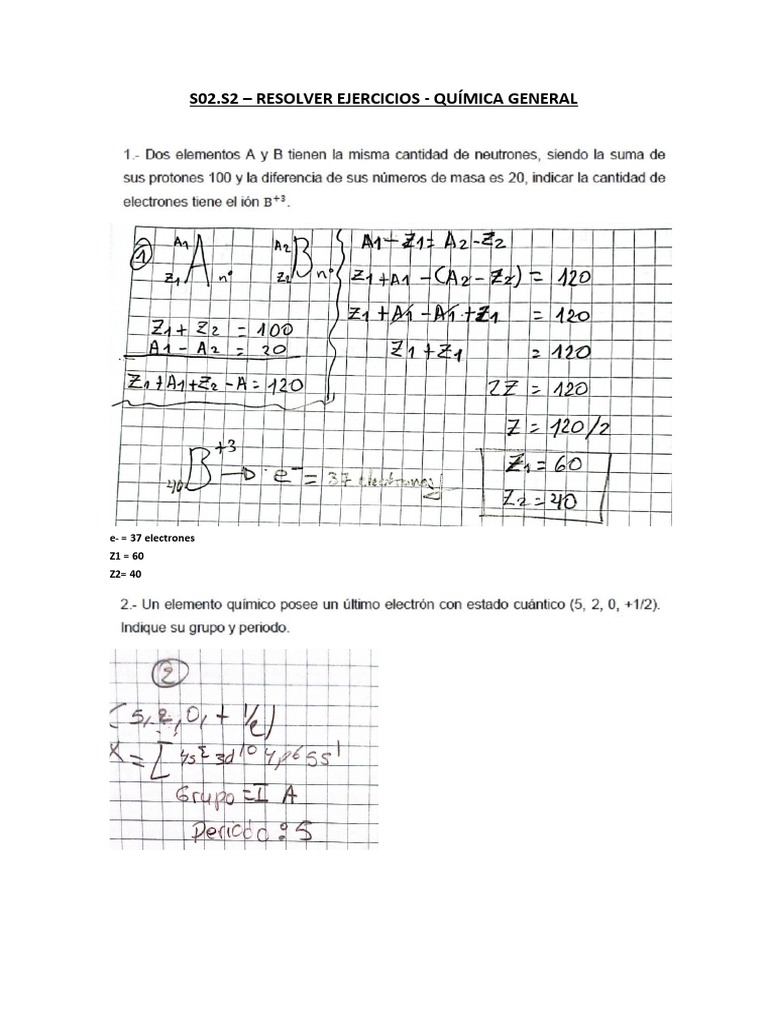 S02.S2 – RESOLVER EJERCICIOS - QUÍMICA GENERAL
1.- Dos elementos A y B tienen la misma cantidad de neutrones, siendo la suma de
sus protones 100 y la diferencia de sus números de masa es 20, indicar la cantidad de
electrones tiene el ión B⁺³.
1
A1 A Z1 n°
A2 B Z2 n°
Z1 + Z2 = 100
A1 - A2 = 20
Z1 + A1 + Z2 - A = 120
A1 - Z1 = A2 - Z2
Z1 + A1 - (A2 - Z2) = 120
Z1 + A1 - A1 + Z1 = 120
Z1 + Z1 = 120
2Z = 120
Z = 120/2
Z1 = 60
Z2 = 40
40 B +3 → e⁻ = 37 electrones
e- = 37 electrones
Z1 = 60
Z2= 40
2.- Un elemento químico posee un último electrón con estado cuántico (5, 2, 0, +1/2).
Indique su grupo y periodo.
2
(5, 2, 0, + 1/2)
X = [ 4s² 3d¹⁰ 4p⁶ 5s¹
Grupo = I A
Periodo : 5